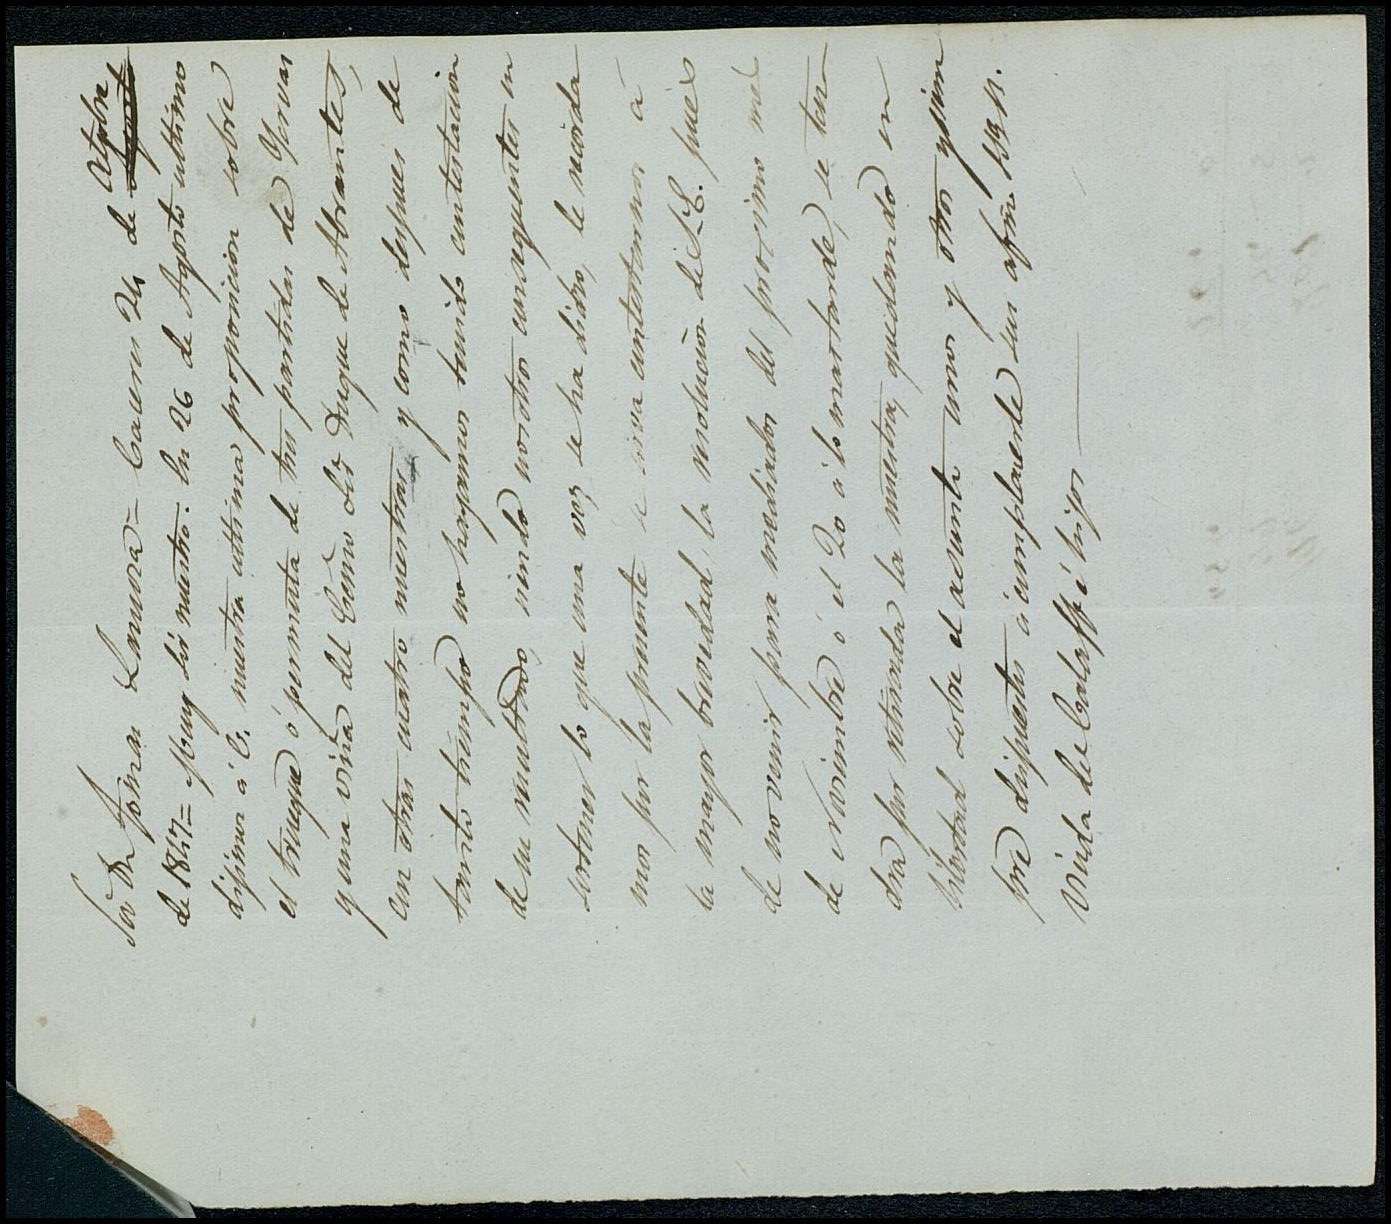 Sor Dn Tomas Lamora = Caceres 24 de Otubre
de 1847 = Muy Sor nuestro. En 26 de Agosto ultimo
dijimos á V. nuestra ultima proposicion sobre
el trueque ó permuta de tres partidas de Yervas
y una viña del Exmo Sor Duque de Abrantes,
con otras cuatro nuestras y como despues de
tanto tiempo no hayamos tenido contestacion
de su resultado, siendo nosotros consequentes en
sostener lo que una vez se ha dicho, le recorda
mos por la presente se sirva contestarnos á
la mayor brevedad, la resolucion de S.E. pues
de no venir para mediados del procsimo mes
de Noviembre ó el 20 á lo mas tarde, se ten
dra por retirada la nuestra, quedando en
livertad sobre el asunto unos y otros y siem
pre dispuestos á complacerle sus afmos SS. SS.
Viuda de Calaff é hijos